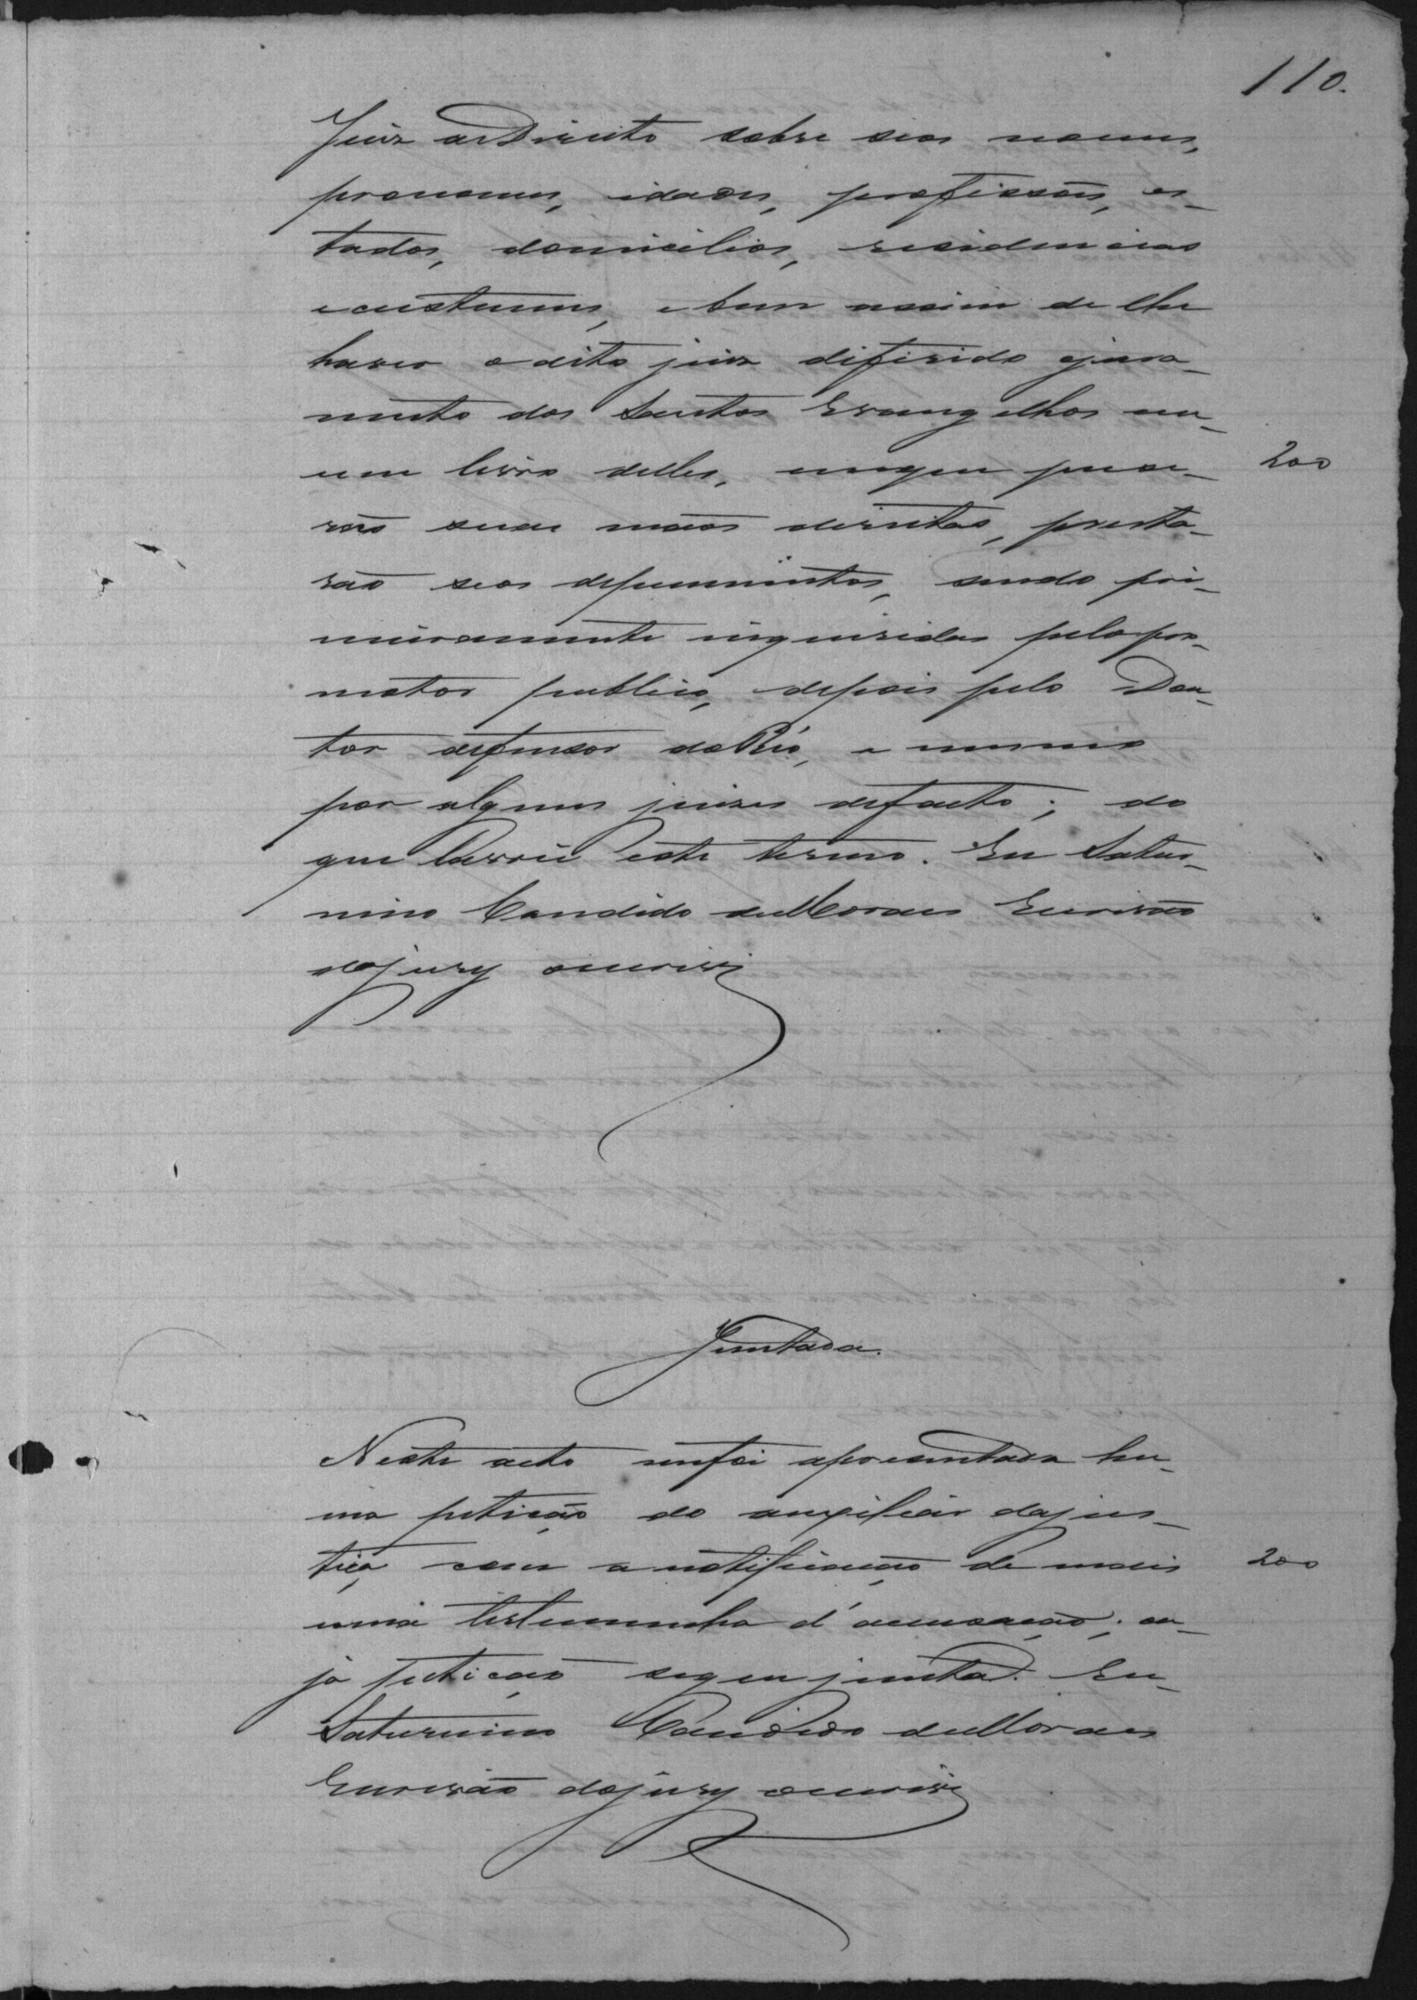 110.
Juiz de Direito sobre seos nomes,
pronomes, idades, profissões, es-
tados, domicilios, residencias
e custumes, e bem assim de lhe
haver o dito juiz diferido o jura-
mento dos Santos Evangelhos em
um livro delles, em que puze- 200
rão suas mãos direitas, presta-
rão seos depuimentos, sendo pri-
meiramente inqueridas pelo pro-
motor publico, depois pelo Dou-
tor defensor do Réo, e mesmo
por alguns juizes de facto; do
que lavrei este termo. Eu Satur-
nino Candido de Moraes Escrivão
do jury o escrivi
Juntada.
Neste acto me foi apresentada hu-
ma petição do auxiliar da jus-
tiça, com a notificação de mais 200
uma testemunha d'accusação; cu-
ja petição segue junta. Eu
Saturnino Candido de Moraes
Escrivão do jury o escrivi